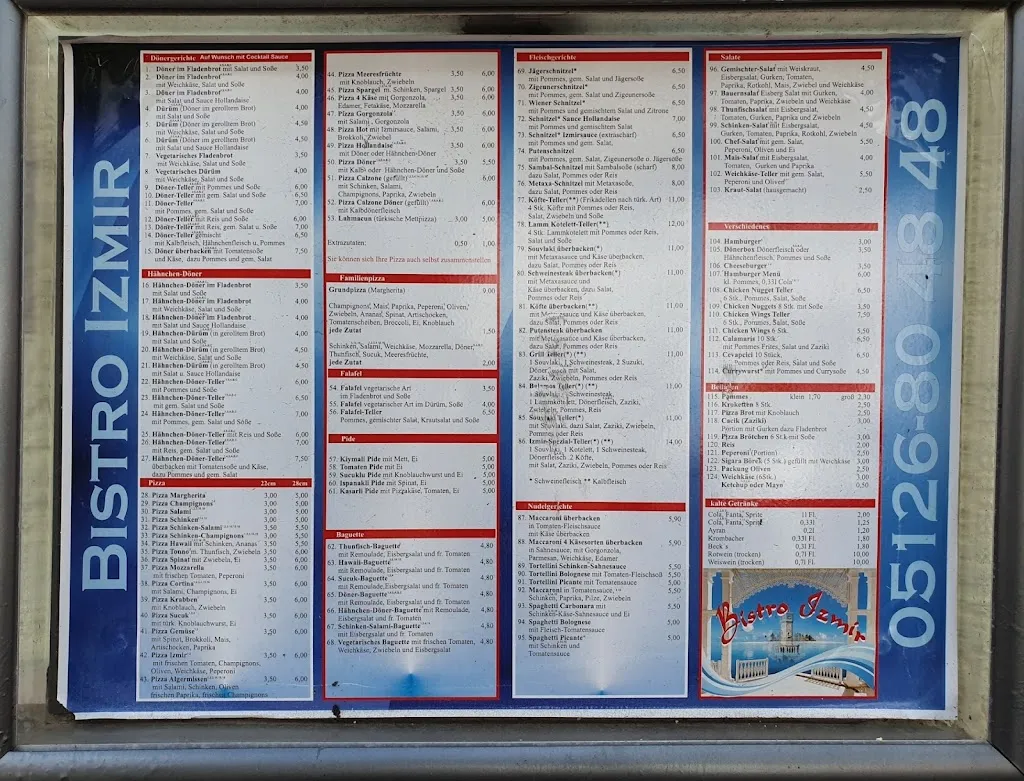 BISTRO IZMIR
Dönergerichte Auf Wunsch mit Cocktail Sauce
1. Döner im Fladenbrot mit Salat und Soße 3,50
2. Döner im Fladenbrot 4,00
mit Weichkäse, Salat und Soße
3. Döner im Fladenbrot 4,00
mit Salat und Sauce Hollandaise
4. Dürüm (Döner im gerolltem Brot) 4,00
mit Salat und Soße
5. Dürüm (Döner im gerolltem Brot) 4,50
mit Weichkäse, Salat und Soße
6. Dürüm (Döner im gerolltem Brot) 4,50
mit Salat und Sauce Hollandaise
7. Vegetarisches Fladenbrot 3,50
mit Weichkäse, Salat und Soße
8. Vegetarisches Dürüm 4,00
mit Weichkäse, Salat und Soße
9. Döner-Teller mit Pommes und Soße 6,00
10. Döner-Teller mit gem. Salat und Soße 6,50
11. Döner-Teller 7,00
mit Pommes, gem. Salat und Soße
12. Döner-Teller mit Reis und Soße 6,00
13. Döner-Teller mit Reis, gem. Salat u. Soße 7,00
14. Döner-Teller gemischt 6,50
mit Kalbfleisch, Hähnchenfleisch u. Pommes
15. Döner überbacken mit Tomatensoße 7,50
und Käse, dazu Pommes und gem. Salat
Hähnchen-Döner
16. Hähnchen-Döner im Fladenbrot 3,50
mit Salat und Soße
17. Hähnchen-Döner im Fladenbrot 4,00
mit Weichkäse, Salat und Soße
18. Hähnchen-Döner im Fladenbrot 4,00
mit Salat und Sauce Hollandaise
19. Hähnchen-Dürüm (in gerolltem Brot) 4,00
mit Salat und Soße
20. Hähnchen-Dürüm (in gerolltem Brot) 4,50
mit Weichkäse, Salat und Soße
21. Hähnchen-Dürüm (in gerolltem Brot) 4,50
mit Salat u. Sauce Hollandaise
22. Hähnchen-Döner-Teller 6,00
mit Pommes und Soße
23. Hähnchen-Döner-Teller 6,50
mit gem. Salat und Soße
24. Hähnchen-Döner-Teller 7,00
mit Pommes, gem. Salat und Soße
25. Hähnchen-Döner-Teller mit Reis und Soße 6,00
26. Hähnchen-Döner-Teller 7,00
mit Reis, gem. Salat und Soße
27. Hähnchen-Döner-Teller 7,50
überbacken mit Tomatensoße und Käse,
dazu Pommes und gem. Salat
Pizza 22cm 28cm
28. Pizza Margherita 3,00 5,00
29. Pizza Champignons 3,00 5,00
30. Pizza Salami 3,00 5,00
31. Pizza Schinken 3,00 5,00
32. Pizza Schinken-Salami 3,50 5,50
33. Pizza Schinken-Champignons 3,50 5,50
34. Pizza Hawaii mit Schinken, Ananas 3,50 5,50
35. Pizza Tonno m. Thunfisch, Zwiebeln 3,50 6,00
36. Pizza Spinat mit Zwiebeln, Ei 3,50 6,00
37. Pizza Mozzarella 3,50 6,00
mit frischen Tomaten, Peperoni
38. Pizza Cortina 3,50 6,00
mit Salami, Champignons, Ei
39. Pizza Krabben 3,50 6,00
mit Knoblauch, Zwiebeln
40. Pizza Sucuk 3,50 6,00
mit türk. Knoblauchwurst, Ei
41. Pizza Gemüse 3,50 6,00
mit Spinat, Brokkoli, Mais,
Artischocken, Paprika
42. Pizza Izmir 3,50 6,00
mit frischen Tomaten, Champignons,
Oliven, Weichkäse, Peperoni
43. Pizza Algermissen 3,50 6,00
mit Salami, Schinken, Oliven
frischen Paprika, frischen Champignons
44. Pizza Meeresfrüchte 3,50 6,00
mit Knoblauch, Zwiebeln
45. Pizza Spargel m. Schinken, Spargel 3,50 6,00
46. Pizza 4 Käse mit Gorgonzola, 3,50 6,00
Edamer, Fetakäse, Mozzarella
47. Pizza Gorgonzola 3,50 6,00
mit Salami, Gorgonzola
48. Pizza Hot mit Izmirsauce, Salami, 3,50 6,00
Brokkoli, Zwiebel
49. Pizza Hollandaise 3,50 6,00
mit Döner oder Hähnchen-Döner
50. Pizza Döner 3,50 5,50
mit Kalb- oder Hähnchen-Döner und Soße
51. Pizza Calzone (gefüllt) 6,00
mit Schinken, Salami,
Champignons, Paprika, Zwiebeln
52. Pizza Calzone Döner (gefüllt) 6,00
mit Kalbdönerfleisch
53. Lahmacun (türkische Mettpizza) 3,00 5,00
Extrazutaten: 0,50 1,00
Sie können sich Ihre Pizza auch selbst zusammenstellen
Familienpizza
Grundpizza (Margherita) 9,00
Champignons, Mais, Paprika, Peperoni, Oliven,
Zwiebeln, Ananas, Spinat, Artischocken,
Tomatenscheiben, Broccoli, Ei, Knoblauch
jede Zutat 1,50
Schinken, Salami, Weichkäse, Mozzarella, Döner,
Thunfisch, Sucuk, Meeresfrüchte,
jede Zutat 2,00
Falafel
54. Falafel vegetarische Art 3,50
im Fladenbrot und Soße
55. Falafel vegetarischer Art im Dürüm, Soße 4,00
56. Falafel-Teller 6,50
Pommes, gemischter Salat, Krautsalat und Soße
Pide
57. Kiymali Pide mit Mett, Ei 5,00
58. Tomaten Pide mit Ei 5,00
59. Sucuklu Pide mit Knoblauchwurst und Ei 5,00
60. Ispanakli Pide mit Spinat, Ei 5,00
61. Kasarli Pide mit Pizzakäse, Tomaten, Ei 5,00
Baguette
62. Thunfisch-Baguette 4,80
mit Remoulade, Eisbergsalat und fr. Tomaten
63. Hawaii-Baguette 4,80
mit Remoulade, Eisbergsalat und fr. Tomaten
64. Sucuk-Baguette 4,80
mit Remoulade,Eisbergsalat und fr. Tomaten
65. Döner-Baguette 4,80
mit Remoulade, Eisbergsalat und fr. Tomaten
66. Hähnchen-Döner-Baguette mit Remoulade, 4,80
Eisbergsalat und fr. Tomaten
67. Schinken-Salami-Baguette 4,80
mit Eisbergsalat und fr. Tomaten
68. Vegetarisches Baguette mit frischen Tomaten, 4,80
Weichkäse, Zwiebeln und Eisbergsalat
Fleischgerichte
69. Jägerschnitzel* 6,50
mit Pommes, gem. Salat und Jägersoße
70. Zigeunerschnitzel* 6,50
mit Pommes, gem. Salat und Zigeunersoße
71. Wiener Schnitzel* 6,50
mit Pommes und gemischtem Salat und Zitrone
72. Schnitzel* Sauce Hollandaise 7,00
mit Pommes und gemischtem Salat
73. Schnitzel* Izmirsauce (semischarf) 6,50
mit Pommes und gem. Salat,
74. Putenschnitzel 6,50
mit Pommes, gem. Salat, Zigeunersoße o. Jägersoße
75. Sambal-Schnitzel mit Sambalsoße (scharf) 8,00
dazu Salat, Pommes oder Reis
76. Metaxa-Schnitzel mit Metaxasoße, 8,00
dazu Salat, Pommes oder Reis
77. Köfte-Teller(**) (Frikadellen nach türk. Art) 11,00
4 Stk. Köfte mit Pommes oder Reis,
Salat, Zwiebeln und Soße
78. Lamm Kotelett-Teller(**) 12,00
4 Stk. Lammkotelett mit Pommes oder Reis,
Salat und Soße
79. Souvlaki überbacken(*) 11,00
mit Metaxasauce und Käse überbacken,
dazu Salat, Pommes oder Reis
80. Schweinesteak überbacken(*) 11,00
mit Metaxasauce und
Käse überbacken, dazu Salat,
Pommes oder Reis
81. Köfte überbacken(**) 11,00
mit Metaxasauce und Käse überbacken,
dazu Salat, Pommes oder Reis
82. Putensteak überbacken 11,00
mit Metaxasauce und Käse überbacken,
dazu Salat, Pommes oder Reis
83. Grill Teller(*) (**) 11,00
1 Souvlaki, 1 Schweinesteak, 2 Suzuki,
Dönerfleisch mit Salat,
Zaziki, Zwiebeln, Pommes oder Reis
84. Teller(*) (**) 11,00
1 Souvlaki, 1 Schweinesteak,
1 Lammkotelett, Dönerfleisch, Zaziki,
Zwiebeln, Pommes, Reis
85. Souvlaki Teller(*) 11,00
mit Souvlaki, dazu Salat, Zaziki, Zwiebeln,
Pommes oder Reis
86. Izmir-Spezial-Teller(*) (**) 14,00
1 Souvlaki, 1 Kotelett, 1 Schweinesteak,
Dönerfleisch, 2 Köfte,
mit Salat, Zaziki, Zwiebeln, Pommes oder Reis
* Schweinefleisch ** Kalbfleisch
Nudelgerichte
87. Maccaroni überbacken 5,90
in Tomaten-Fleischsauce
mit Käse überbacken
88. Maccaroni 4 Käsesorten überbacken 5,90
in Sahnesauce, mit Gorgonzola,
Parmesan, Weichkäse, Edamer
89. Tortellini Schinken-Sahnesauce 5,50
90. Tortellini Bolognese mit Tomaten-Fleischsoße 5,50
91. Tortellini Picante mit Tomatensauce 5,00
92. Maccaroni in Tomatensauce, 5,50
Schinken, Paprika, Pilze, Zwiebeln
93. Spaghetti Carbonara mit 5,50
Schinken-Käse-Sahnesauce und Ei
94. Spaghetti Bolognese 5,00
mit Fleisch-Tomatensauce
95. Spaghetti Picante 5,00
mit Schinken und
Tomatensauce
Salate
96. Gemischter-Salat mit Weiskraut, 4,50
Eisbergsalat, Gurken, Tomaten,
Paprika, Rotkohl, Mais, Zwiebeln und Weichkäse
97. Bauernsalat Eisberg Salat mit Gurken, 4,00
Tomaten, Paprika, Zwiebeln und Weichkäse
98. Thunfischsalat mit Eisbergsalat, 4,50
Tomaten, Gurken, Paprika und Zwiebeln
99. Schinken-Salat mit Eisbergsalat, 4,50
Gurken, Tomaten, Paprika, Rotkohl, Zwiebeln
100. Chef-Salat mit gem. Salat, 5,50
Peperoni, Oliven und Ei
101. Mais-Salat mit Eisbergsalat, 4,00
Tomaten, Gurken und Paprika
102. Weichkäse-Teller mit gem. Salat, 5,50
Peperoni und Oliven
103. Kraut-Salat (hausgemacht) 2,50
Verschiedenes
104. Hamburger 3,00
105. Dönerbox Dönerfleisch oder 3,50
Hähnchenfleisch, Pommes und Soße
106. Cheeseburger 3,50
107. Hamburger Menü 6,00
kl. Pommes, 0,33l Cola
108. Chicken Nugget Teller 6,50
6 Stk., Pommes, Salat, Soße
109. Chicken Nuggets 8 Stk. mit Soße 3,50
110. Chicken Wings Teller 7,50
6 Stk., Pommes, Salat, Soße
111. Chicken Wings 6 Stk. 5,50
112. Calamaris 10 Stk. 6,50
mit Pommes Frites, Salat und Zaziki
113. Cevapcici 10 Stück, 6,50
mit Pommes oder Reis, Salat und Soße
114. Currywurst* mit Pommes und Currysoße 4,50
Beilagen
115. Pommes klein 1,70 groß 2,30
116. Kroketten 8 Stk. 2,50
117. Pizza Brot mit Knoblauch 2,50
118. Cacik (Zaziki) 3,00
Portion mit Gurken dazu Fladenbrot
119. Pizza Brötchen 6 Stk mit Soße 3,00
120. Reis 2,00
121. Peperoni (Portion) 2,50
122. Sigara Börek (5 Stk.) gefüllt mit Weichkäse 3,00
123. Packung Oliven 2,50
124. Weichkäse (6Stk.) 3,00
Ketchup oder Mayo 0,50
kalte Getränke
Cola, Fanta, Sprite 1l Fl. 2,00
Cola, Fanta, Sprite 0,33l 1,25
Ayran 0,2l 1,20
Krombacher 0,33l Fl 1,80
Beck´s 0,3l Fl. 1,80
Rotwein (trocken) 0,7l Fl. 10,00
Weiswein (trocken) 0,7l Fl. 10,00
Bistro Izmir
05126-80 43 48